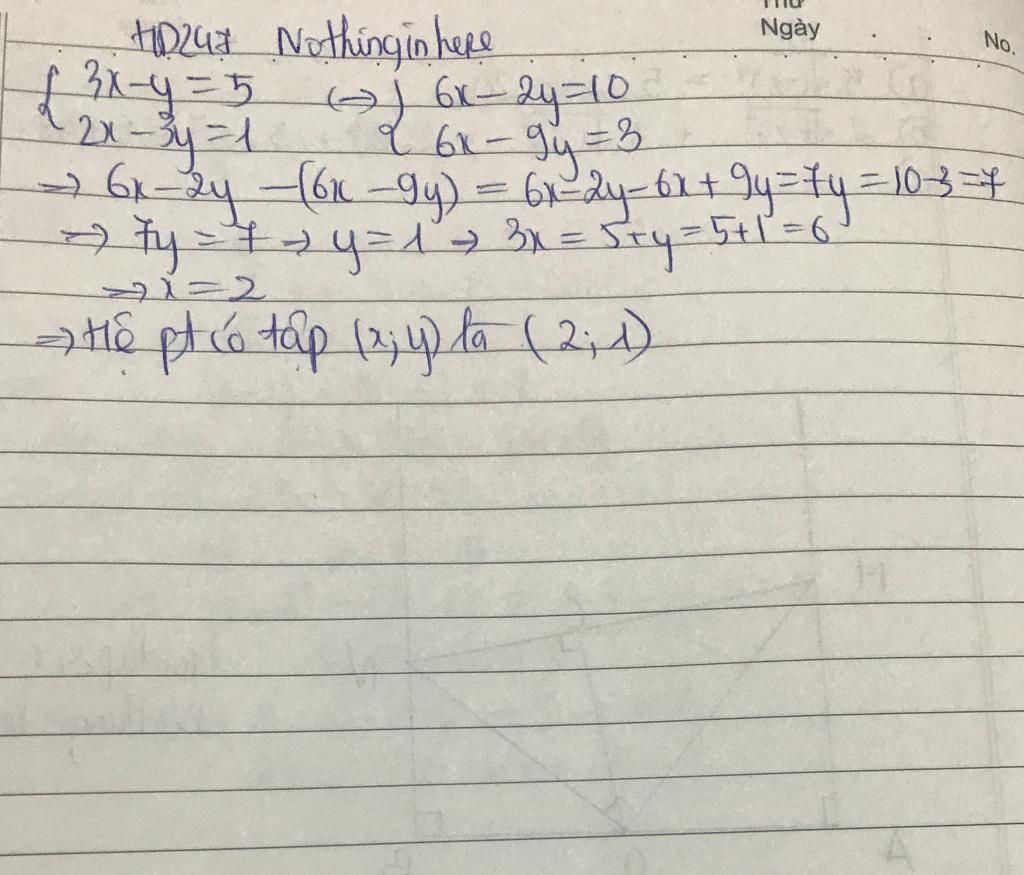 Thứ
Ngày . . No.
HD247 Nothinginhere
{ 3x-y=5 (->) { 6x-2y=10
2x-3y=1 6x-9y=3
=> 6x-2y -(6x-9y) = 6x-2y-6x+9y=7y=10-3=7
=> 7y=7 -> y=1 -> 3x = 5+y=5+1=6
=> x=2
=> Hệ pt có tập (x;y) là (2;1)